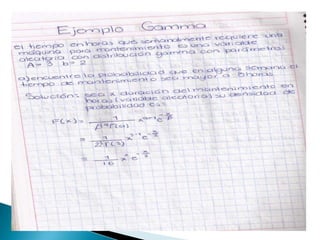 Ejemplo Gamma
El tiempo en horas que semanalmente requiere una
maquina para mantenimiento es una variable
aleatoria con distribución gamma con parámetros
A= 3, b= 2
a) encuentre la probabilidad que en alguna semana el
tiempo de mantenimiento sea mayor a 8 horas
Solución: sea x duración del mantenimiento en
horas (variable aleatoria) su densidad de
probabilidad es:
F(x) =
=
= 1/16 x² e^-x/2